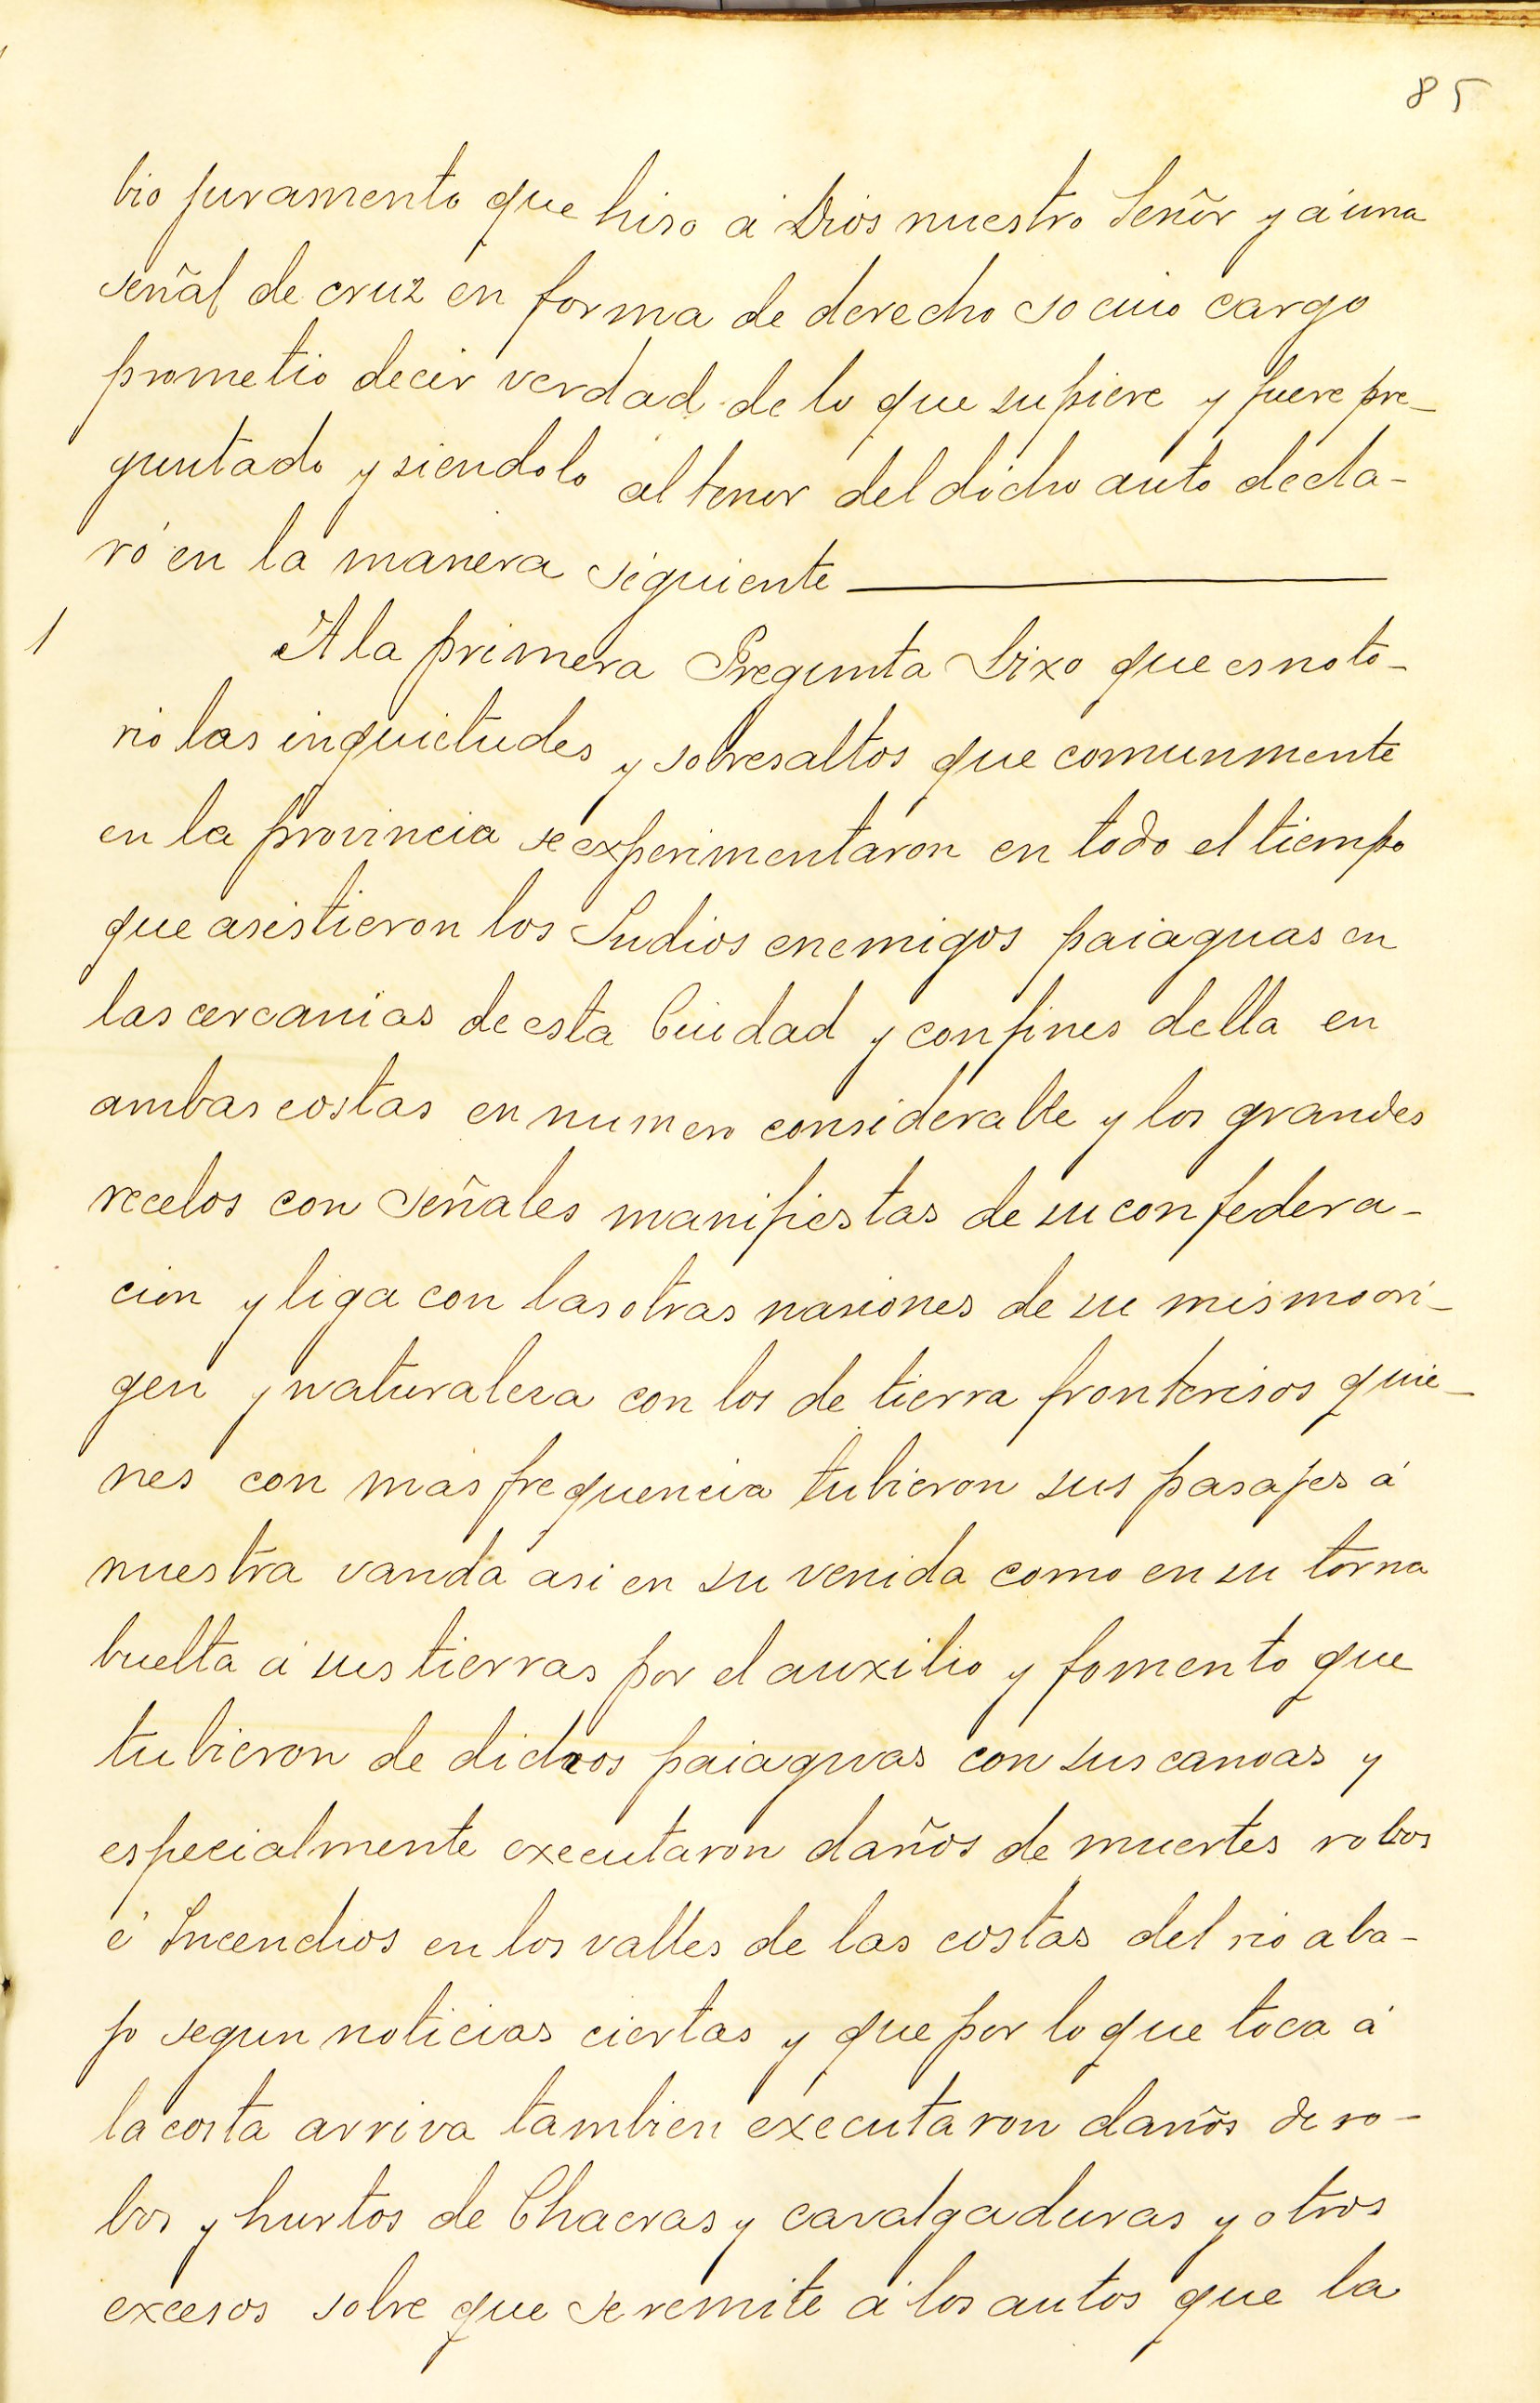 85
bio juramento que hiso á Dios nuestro Señor y á una
señal de cruz en forma de derecho so cuio cargo
prometio decir verdad de lo que supiere y fuere pre-
guntado y siendolo al tenor del dicho auto decla-
ró en la manera siguiente
1 A la primera Pregunta Dixo que es noto-
rio las inquietudes y sobresaltos que comunmente
en la provincia se experimentaron en todo el tiempo
que asistieron los Indios enemigos paiaguas en
las cercanias de esta Ciudad y confines della en
ambas costas en numero considerable y los grandes
recelos con señales manifiestas de su confedera-
cion y liga con las otras nasiones de su mismo ori-
gen y naturalesa con los de tierra fronterisos quie-
nes con mas frequencia tubieron sus pasajes á
nuestra vanda asi en su venida como en su torna
buelta á sus tierras por el auxilio y fomento que
tubieron de dichos paiaguas con sus canoas y
especialmente executaron daños de muertes robos
é Incendios en los valles de las costas del rio aba-
jo segun noticias ciertas y que por lo que toca á
la costa arriva tambien executaron daños de ro-
bos y hurtos de Chacras y cavalgaduras y otros
excesos sobre que se remite á los autos que la